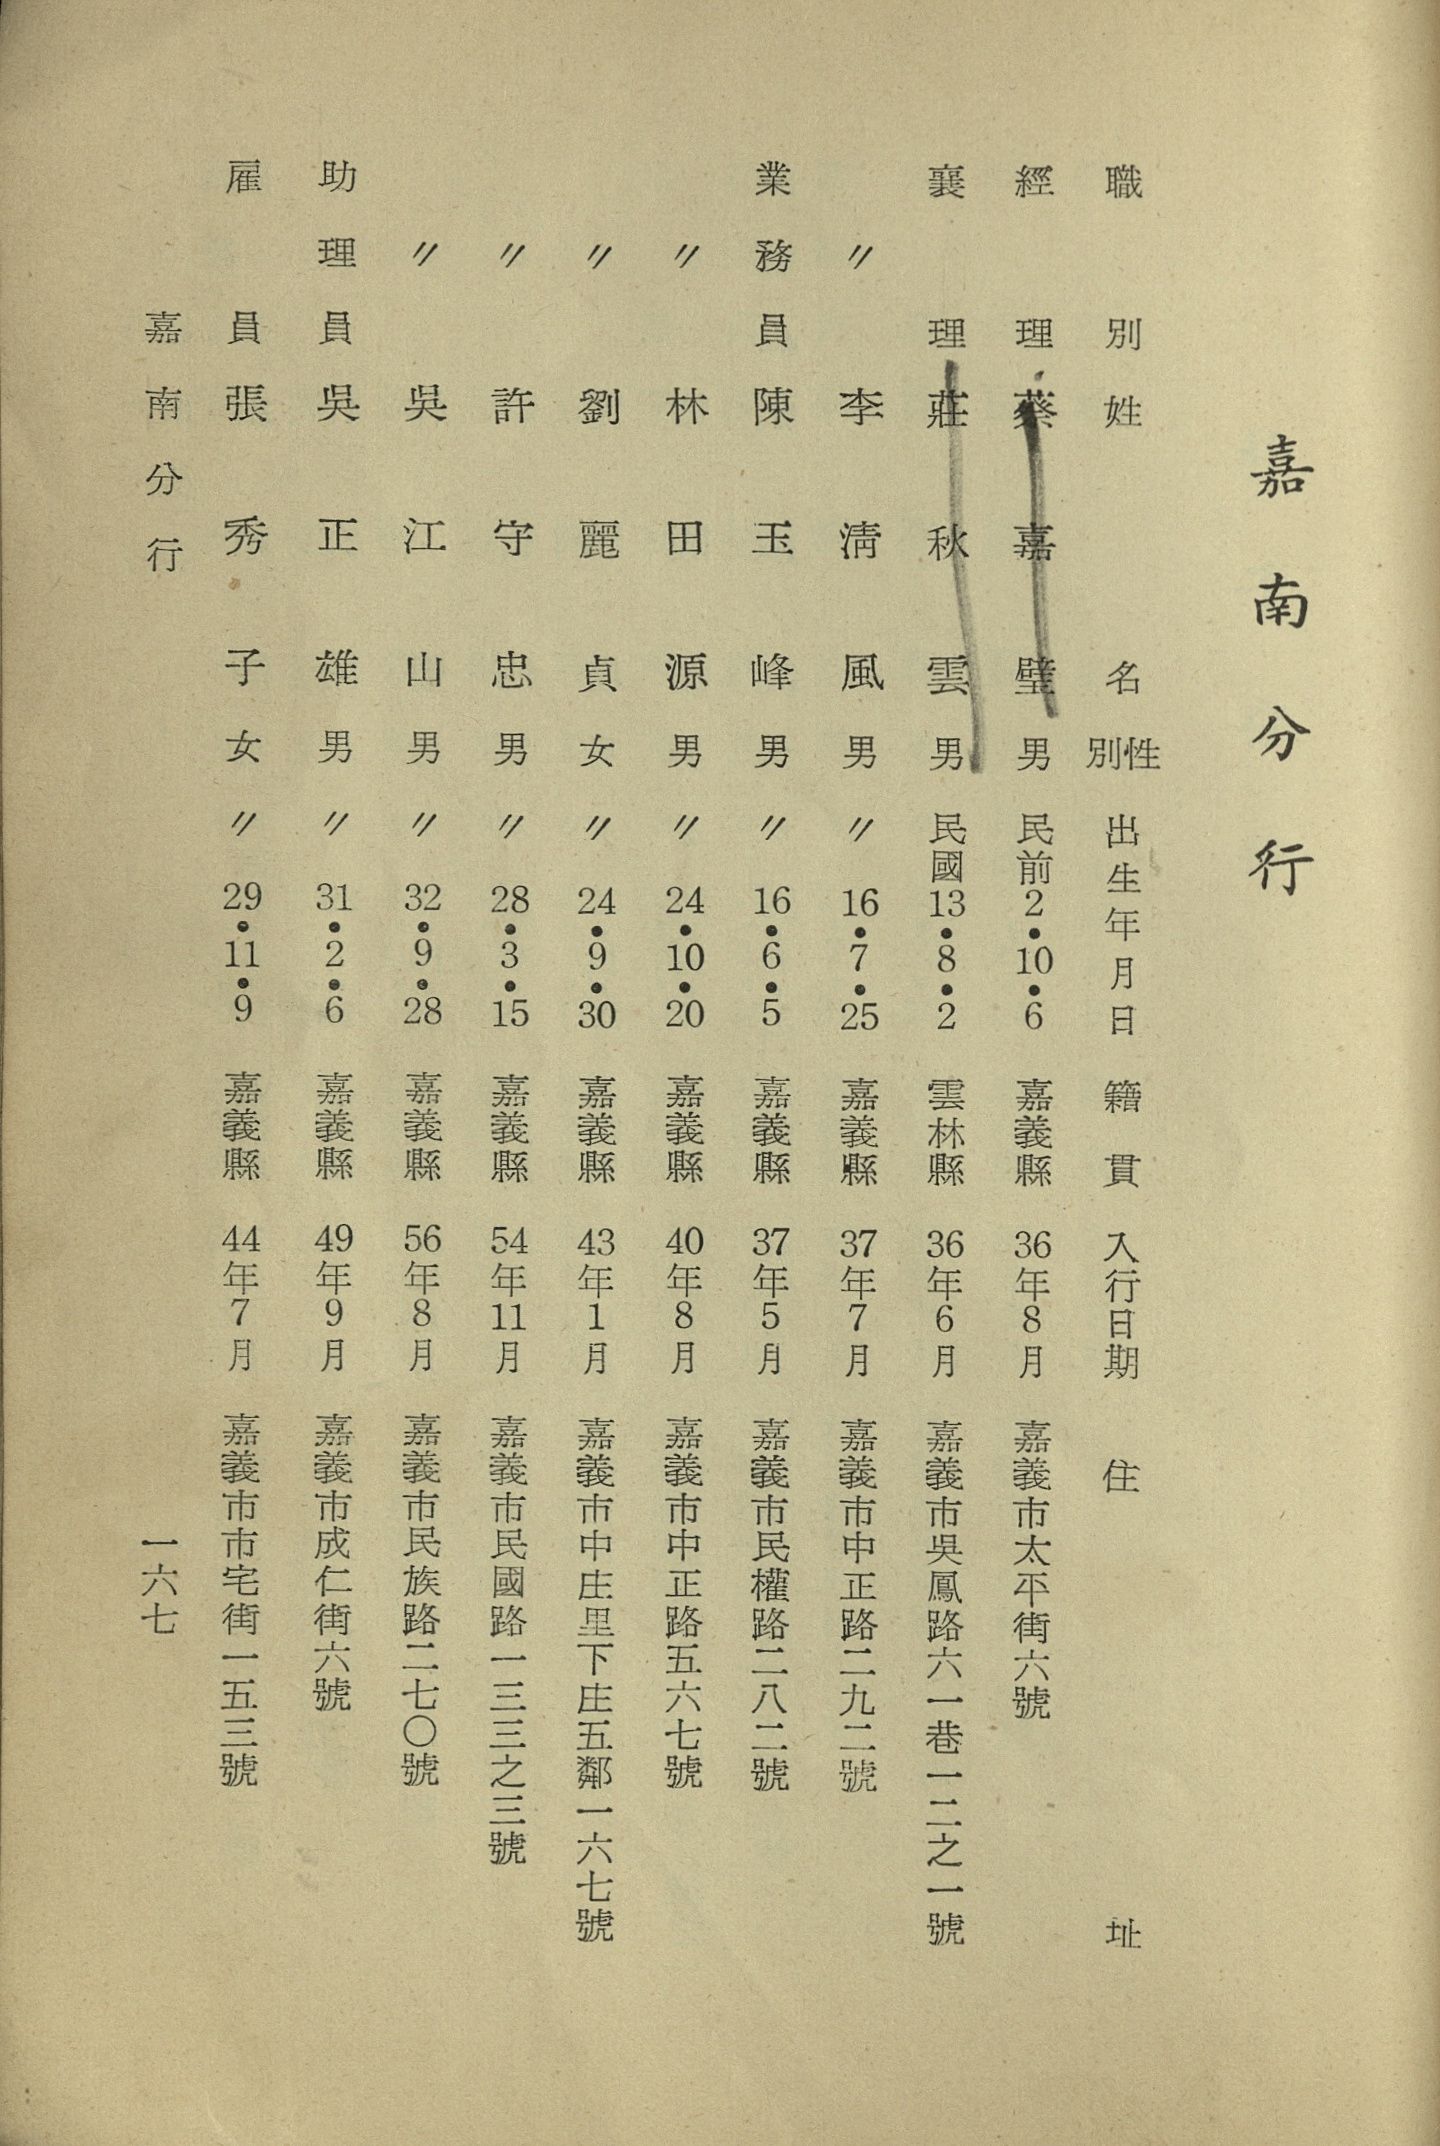 嘉南分行
職別 姓名 性別 出生年月日 籍貫 入行日期 住址
經理 蔡嘉璧 男 民前2•10•6 嘉義縣 36年8月 嘉義市太平街六號
襄理 莊秋雲 男 民國13•8•2 雲林縣 36年6月 嘉義市吳鳳路六一巷一二之一號
〃 李淸風 男 〃16•7•25 嘉義縣 37年7月 嘉義市中正路二九二號
業務員 陳玉峰 男 〃16•6•5 嘉義縣 37年5月 嘉義市民權路二八二號
〃 林田源 男 〃24•10•20 嘉義縣 40年8月 嘉義市中正路五六七號
〃 劉麗貞 女 〃24•9•30 嘉義縣 43年1月 嘉義市中庄里下庄五鄰一六七號
〃 許守忠 男 〃28•3•15 嘉義縣 54年11月 嘉義市民國路一三三之三號
〃 吳江山 男 〃32•9•28 嘉義縣 56年8月 嘉義市民族路二七〇號
助理員 吳正雄 男 〃31•2•6 嘉義縣 49年9月 嘉義市成仁街六號
雇員 張秀子 女 〃29•11•9 嘉義縣 44年7月 嘉義市市宅街一五三號
嘉南分行 一六七